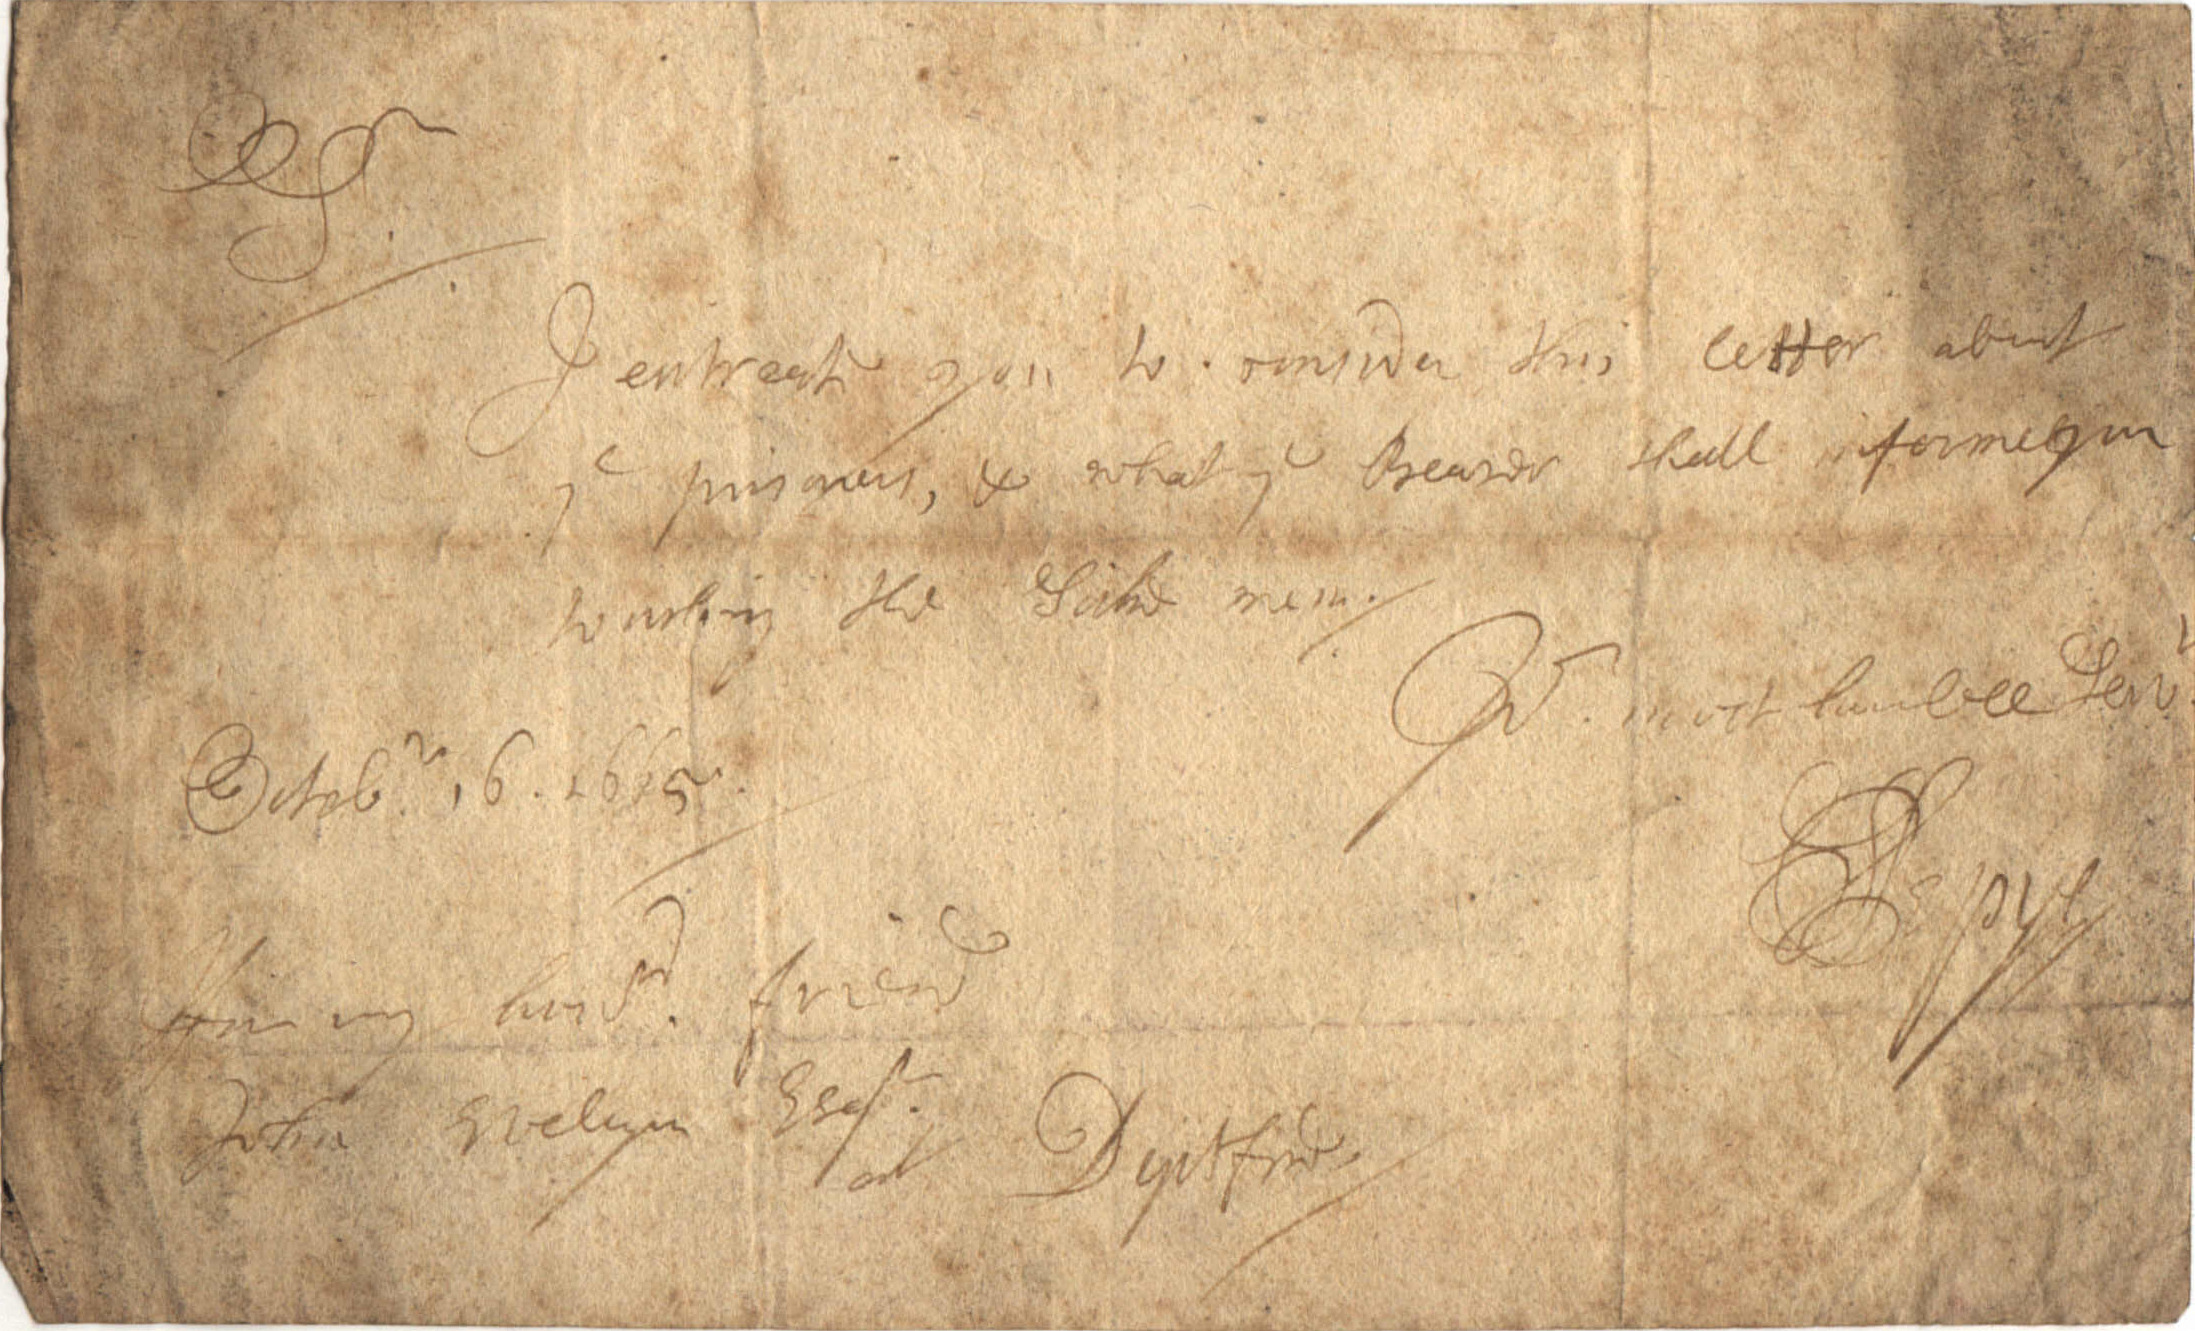 Sr.
I entreate you to consider this letter about
ye prisoners, & what ye Bearer shall informe you
touching the Sicke men.
Yor. most humble Servt.
Octobr. 16. 1665.
SPepys
For my honrd. friend
John Evelyn Esqr.
at Deptford.